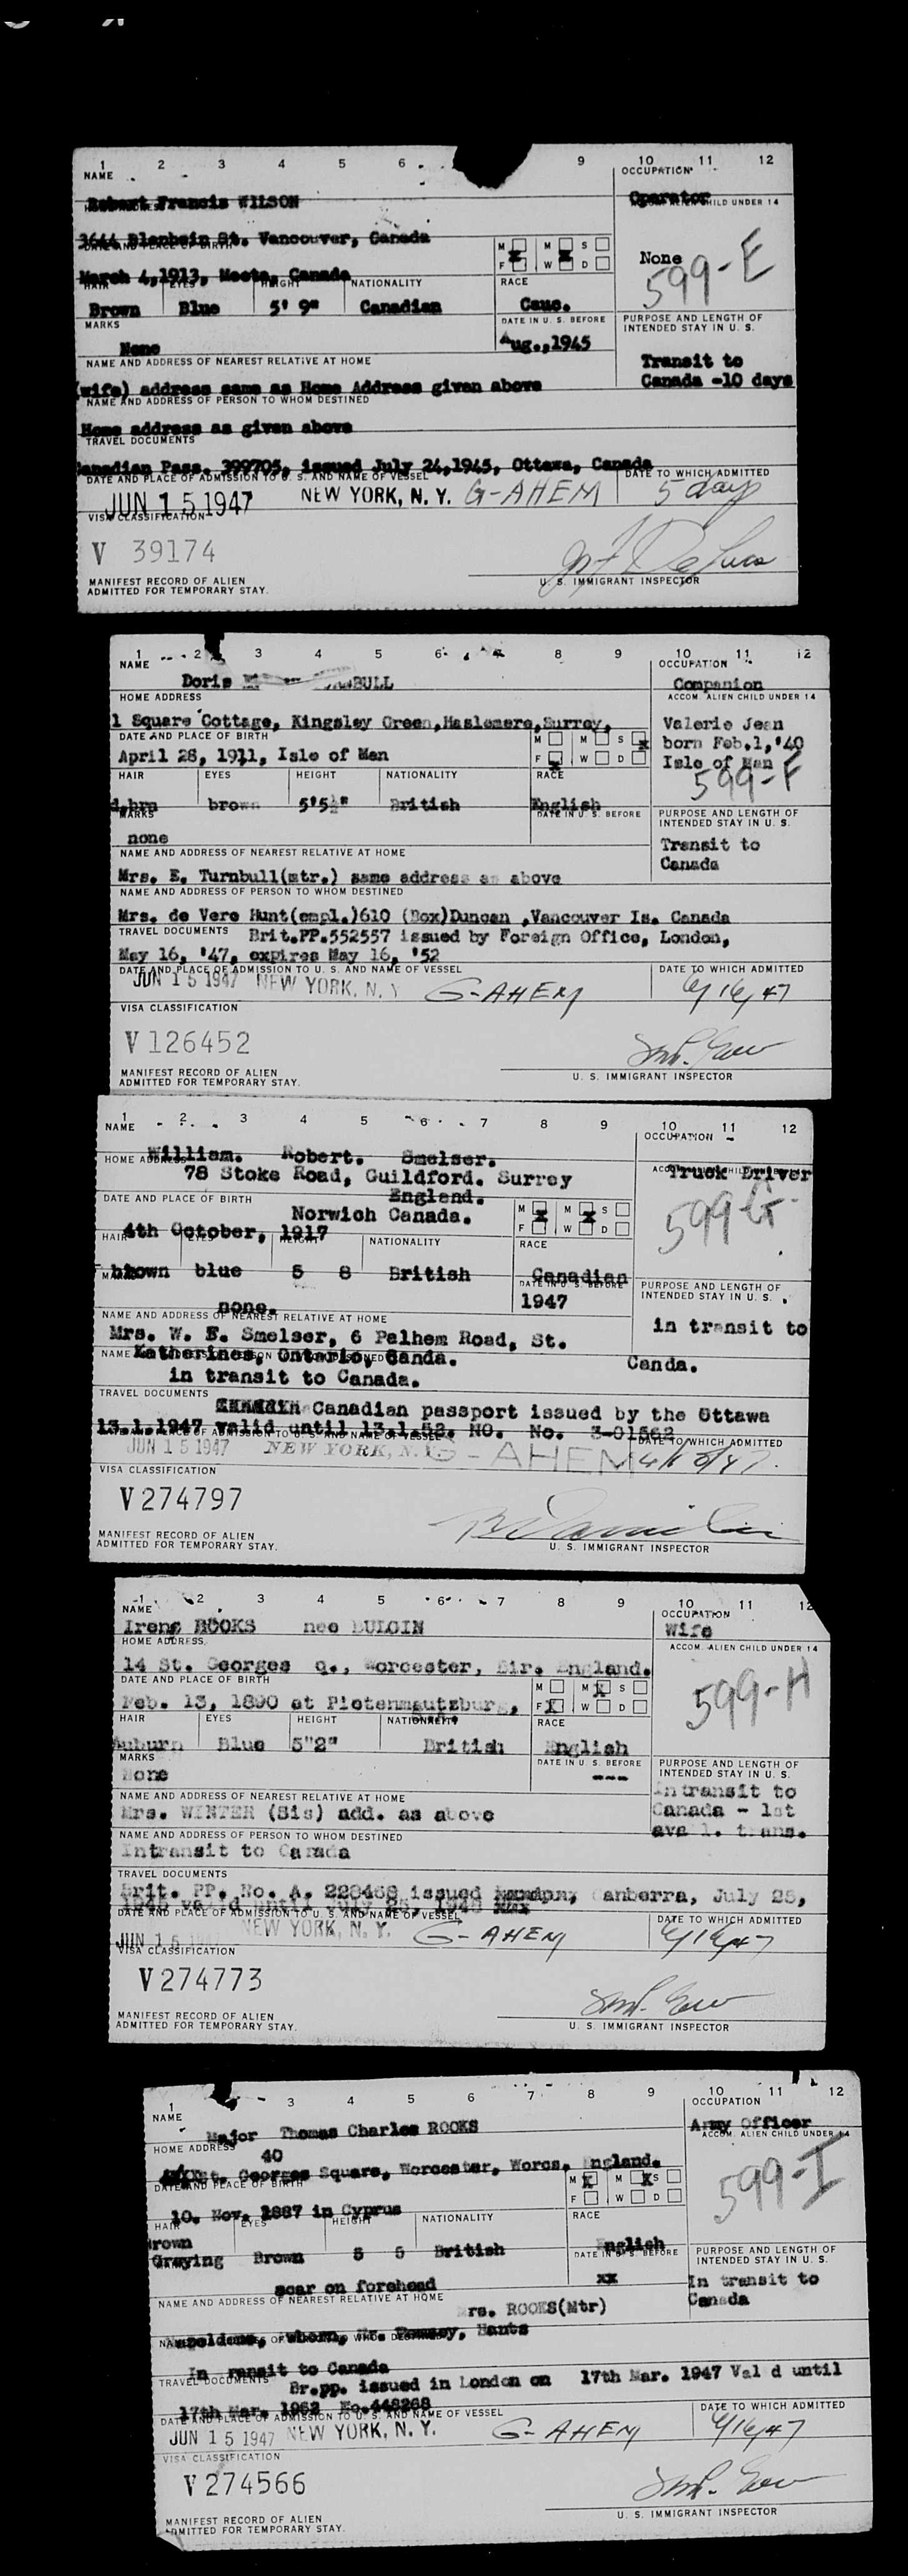 1 2 3 4 5 6 9 10 11 12
NAME
OCCUPATION
Robert Francis WILSON
Operator
CHILD UNDER 14
3644 Blenheim St. Vancouver, Canada
DATE AND PLACE OF BIRTH
M M S
None
599-E
March 4,1913, Meota, Canada
F W D
HAIR EYES HEIGHT NATIONALITY RACE
Brown Blue 5' 9" Canadian Cauc.
MARKS
DATE IN U. S. BEFORE
PURPOSE AND LENGTH OF
INTENDED STAY IN U. S.
None
Aug.,1945
NAME AND ADDRESS OF NEAREST RELATIVE AT HOME
Transit to
(wife) address same as Home Address given above
Canada -10 days
NAME AND ADDRESS OF PERSON TO WHOM DESTINED
Home address as given above
TRAVEL DOCUMENTS
Canadian Pass. 399705, issued July 24,1945, Ottawa, Canada
DATE AND PLACE OF ADMISSION TO U. S. AND NAME OF VESSEL
DATE TO WHICH ADMITTED
JUN 15 1947 NEW YORK, N. Y. G-AHEM 5 day
VISA CLASSIFICATION
V 39174
MANIFEST RECORD OF ALIEN
ADMITTED FOR TEMPORARY STAY.
U. S. IMMIGRANT INSPECTOR
1 2 3 4 5 6 7 8 9 10 11 12
NAME
OCCUPATION
Doris
Companion
HOME ADDRESS
ACCOM. ALIEN CHILD UNDER 14
1 Square Cottage, Kingsley Green,Haslemere,Surrey,
Valerie Jean
DATE AND PLACE OF BIRTH
M M S
born Feb.1,'40
April 28, 1911, Isle of Man
F W D
Isle of Man
599-F
HAIR EYES HEIGHT NATIONALITY RACE
d.brn brown 5'5½" British English
MARKS
DATE IN U. S. BEFORE
PURPOSE AND LENGTH OF
INTENDED STAY IN U. S.
none
Transit to
NAME AND ADDRESS OF NEAREST RELATIVE AT HOME
Canada
Mrs. E. Turnbull(mtr.) same address as above
NAME AND ADDRESS OF PERSON TO WHOM DESTINED
Mrs. de Vere Hunt(empl.)610 (Box)Duncan ,Vancouver Is. Canada
TRAVEL DOCUMENTS Brit.PP.552557 issued by Foreign Office, London,
May 16, '47, expires May 16, '52
DATE AND PLACE OF ADMISSION TO U. S. AND NAME OF VESSEL
DATE TO WHICH ADMITTED
JUN 15 1947 NEW YORK, N. Y G-AHEM 6/16/47
VISA CLASSIFICATION
V 126452
MANIFEST RECORD OF ALIEN
ADMITTED FOR TEMPORARY STAY.
U. S. IMMIGRANT INSPECTOR
1 2 3 4 5 6 7 8 9 10 11 12
NAME
OCCUPATION
William. Robert. Smelser.
HOME ADDRESS
Truck Driver
78 Stoke Road, Guildford. Surrey
England.
DATE AND PLACE OF BIRTH
599-G
Norwich Canada.
M M S
4th October, 1917
F W D
HAIR EYES HEIGHT NATIONALITY RACE
brown blue 5 8 British Canadian
DATE IN U. S. BEFORE
PURPOSE AND LENGTH OF
INTENDED STAY IN U. S.
none.
1947
NAME AND ADDRESS OF NEAREST RELATIVE AT HOME
in transit to
Mrs. W. E. Smelser, 6 Palhem Road, St.
Katherines, Ontario, Canda.
Canda.
in transit to Canada.
TRAVEL DOCUMENTS
Canadian passport issued by the Ottawa
13.1.1947 valid until 13.1.52. NO. No. 3-01562
DATE TO WHICH ADMITTED
JUN 15 1947 NEW YORK, N.Y. G-AHEM
VISA CLASSIFICATION
V 274797
MANIFEST RECORD OF ALIEN
ADMITTED FOR TEMPORARY STAY.
U. S. IMMIGRANT INSPECTOR
1 2 3 4 5 6 7 8 9 10 11 12
NAME
OCCUPATION
Irene ROOKS nee BULGIN
Wife
HOME ADDRESS
ACCOM. ALIEN CHILD UNDER 14
14 St. Georges q., Worcester, England.
DATE AND PLACE OF BIRTH
M M S
599-H
Feb. 13, 1890 at Pietenmautzburg,
F W D
HAIR EYES HEIGHT NATIONALITY RACE
Auburn Blue 5"2" British English
MARKS
DATE IN U. S. BEFORE
PURPOSE AND LENGTH OF
INTENDED STAY IN U. S.
None
---
Intransit to
NAME AND ADDRESS OF NEAREST RELATIVE AT HOME
Canada - 1st
Mrs. WINTER (Sis) add. as above
ava l. trans.
NAME AND ADDRESS OF PERSON TO WHOM DESTINED
Intransit to Canada
TRAVEL DOCUMENTS
Brit. PP. No. A. 228468 issued Canberra, July 25,
DATE AND PLACE OF ADMISSION TO U. S. AND NAME OF VESSEL
DATE TO WHICH ADMITTED
JUN 15 NEW YORK, N. Y. G-AHEM 6/16/47
VISA CLASSIFICATION
V 274773
MANIFEST RECORD OF ALIEN
ADMITTED FOR TEMPORARY STAY.
U. S. IMMIGRANT INSPECTOR
1 3 4 5 6 7 8 9 10 11 12
NAME
OCCUPATION
Major Thomas Charles ROOKS
Army Officer
HOME ADDRESS
ACCOM. ALIEN CHILD UNDER 14
40
St. Georges Square, Worcester, Worcs. England.
DATE AND PLACE OF BIRTH
M M S
599-I
10. Nov. 1887 in Cyprus
F W D
HAIR EYES HEIGHT NATIONALITY RACE
Brown
Graying Brown 5 5 British English
DATE IN U. S. BEFORE
PURPOSE AND LENGTH OF
INTENDED STAY IN U. S.
scar on forehead
xx
In transit to
NAME AND ADDRESS OF NEAREST RELATIVE AT HOME
Canada
Mrs. ROOKS(Mtr)
Hants
In ransit to Canada
TRAVEL DOCUMENTS Br.pp. issued in London on 17th Mar. 1947 Val d until
17th Mar. 1952 No.448268
DATE AND PLACE OF ADMISSION TO U. S. AND NAME OF VESSEL
DATE TO WHICH ADMITTED
JUN 15 1947 NEW YORK, N. Y. G-AHEM 6/16/47
VISA CLASSIFICATION
V 274566
MANIFEST RECORD OF ALIEN
ADMITTED FOR TEMPORARY STAY.
U. S. IMMIGRANT INSPECTOR